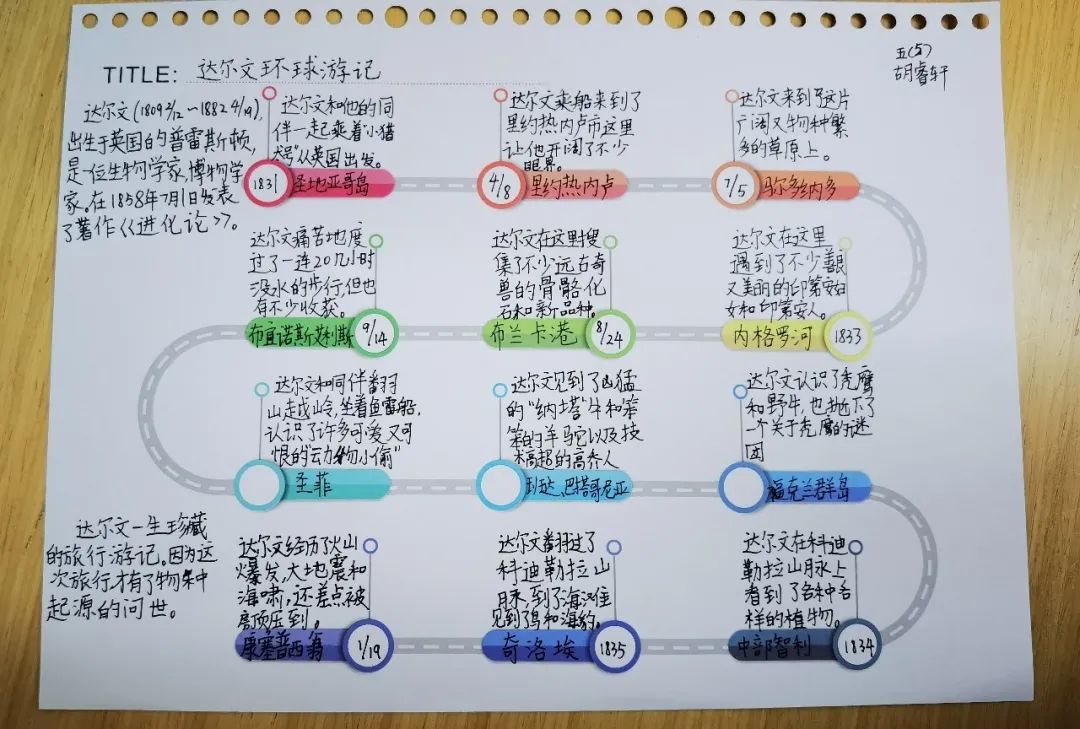 五(5)
胡睿轩
TITLE: 达尔文环球游记
达尔文(1809 2/12 ~1882 4/19),
出生于英国的普雷斯顿,
是一位生物学家,博物学
家。在1858年7月1日发表
了著作《进化论》。
达尔文和他的同
伴一起乘着“小猎
犬号”从英国出发。
1831
圣地亚哥岛
达尔文乘船来到了
里约热内卢市这里
让他开阔了不少
眼界。
4/8
里约热内卢
达尔文来到了这片
广阔又物种繁
多的草原上。
7/5
马尔多纳多
达尔文在这里
遇到了不少善良
又美丽的印第安妇
女和印第安人。
内格罗河
1833
达尔文在这里搜
集了不少远古奇
兽的骨骼化
石和新品种。
布兰卡港
8/24
达尔文痛苦地度
过了一连20几小时
没水的步行,但也
有不少收获。
布宜诺斯艾利斯
9/14
达尔文和同伴翻
山越岭,坐着鱼雷船,
认识了许多可爱又可
恨的动物“小偷”
圣菲
达尔文见到了凶猛
的“纳塔”牛和笨
笨的羊驼以及技
术高超的高乔人
巴塔哥尼亚
达尔文认识了秃鹰
和野牛,也抛下了
一个关于秃鹰的谜
团
福克兰群岛
达尔文在科迪
勒拉山脉上
看到了各种各
样的植物。
中部智利
1834
达尔文翻过了
科迪勒拉山
脉,到了海滩
见到了鸟和海豹。
奇洛埃
1835
达尔文经历了火山
爆发,大地震和
海啸,还差点被
房顶压到。
康塞普西翁
1/19
达尔文一生珍藏
的旅行游记。因为这
次旅行,才有了物种
起源的问世。